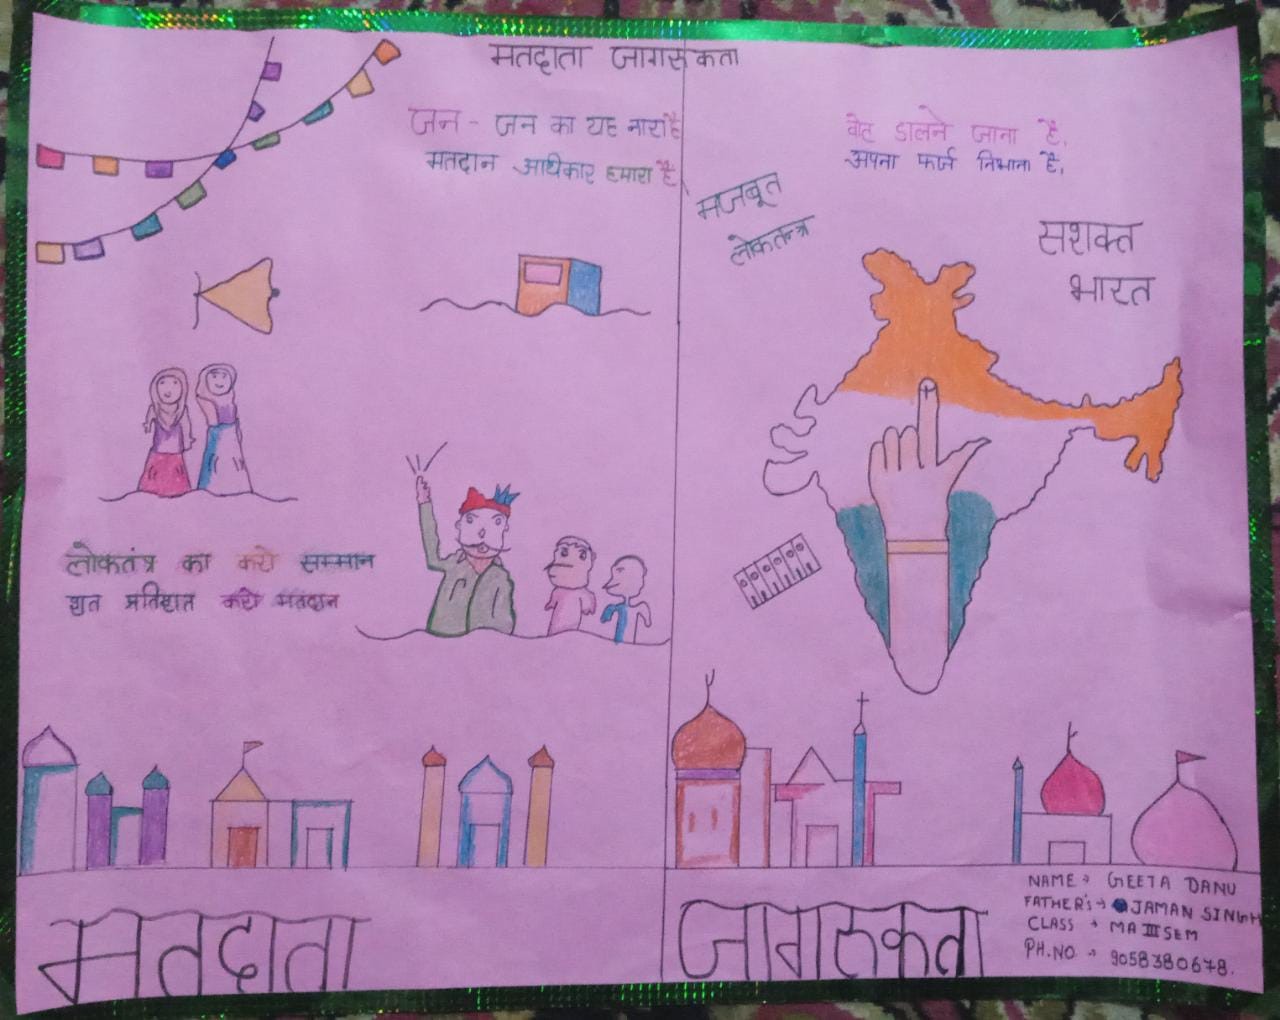 मतदाता जागरूकता
जन - जन का यह नारा है
मतदान अधिकार हमारा है
लोकतंत्र का करो सम्मान
शत प्रतिशत करो मतदान
वोट डालने जाना है,
अपना फर्ज निभाना है,
मजबूत
लोकतन्त्र
सशक्त
भारत
मतदाता
जागरुकता
NAME → GEETA DANU
FATHER'S → JAMAN SINGH
CLASS → MA III SEM
PH.NO → 9058380678.